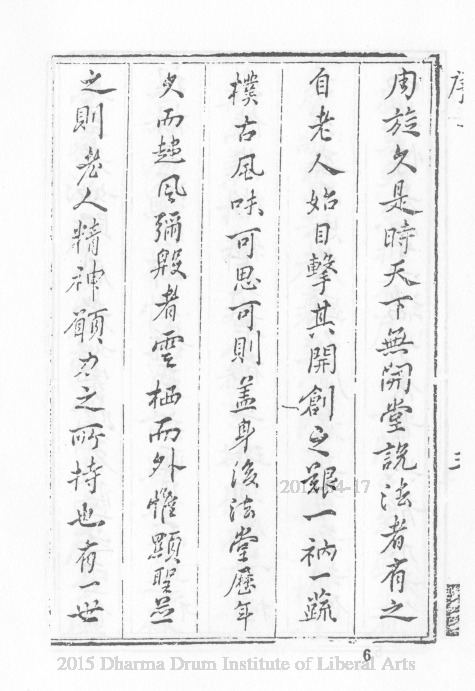 序
三
周旋久是時天下無開堂說法者有之
自老人始目擊其開創之艱一衲一蔬
樸古風味可思可則蓋身後法堂歷年
久而趨風彌殷者雲栖而外惟顯聖并
之則老人精神願力之所持也有一世
6
2015 Dharma Drum Institute of Liberal Arts